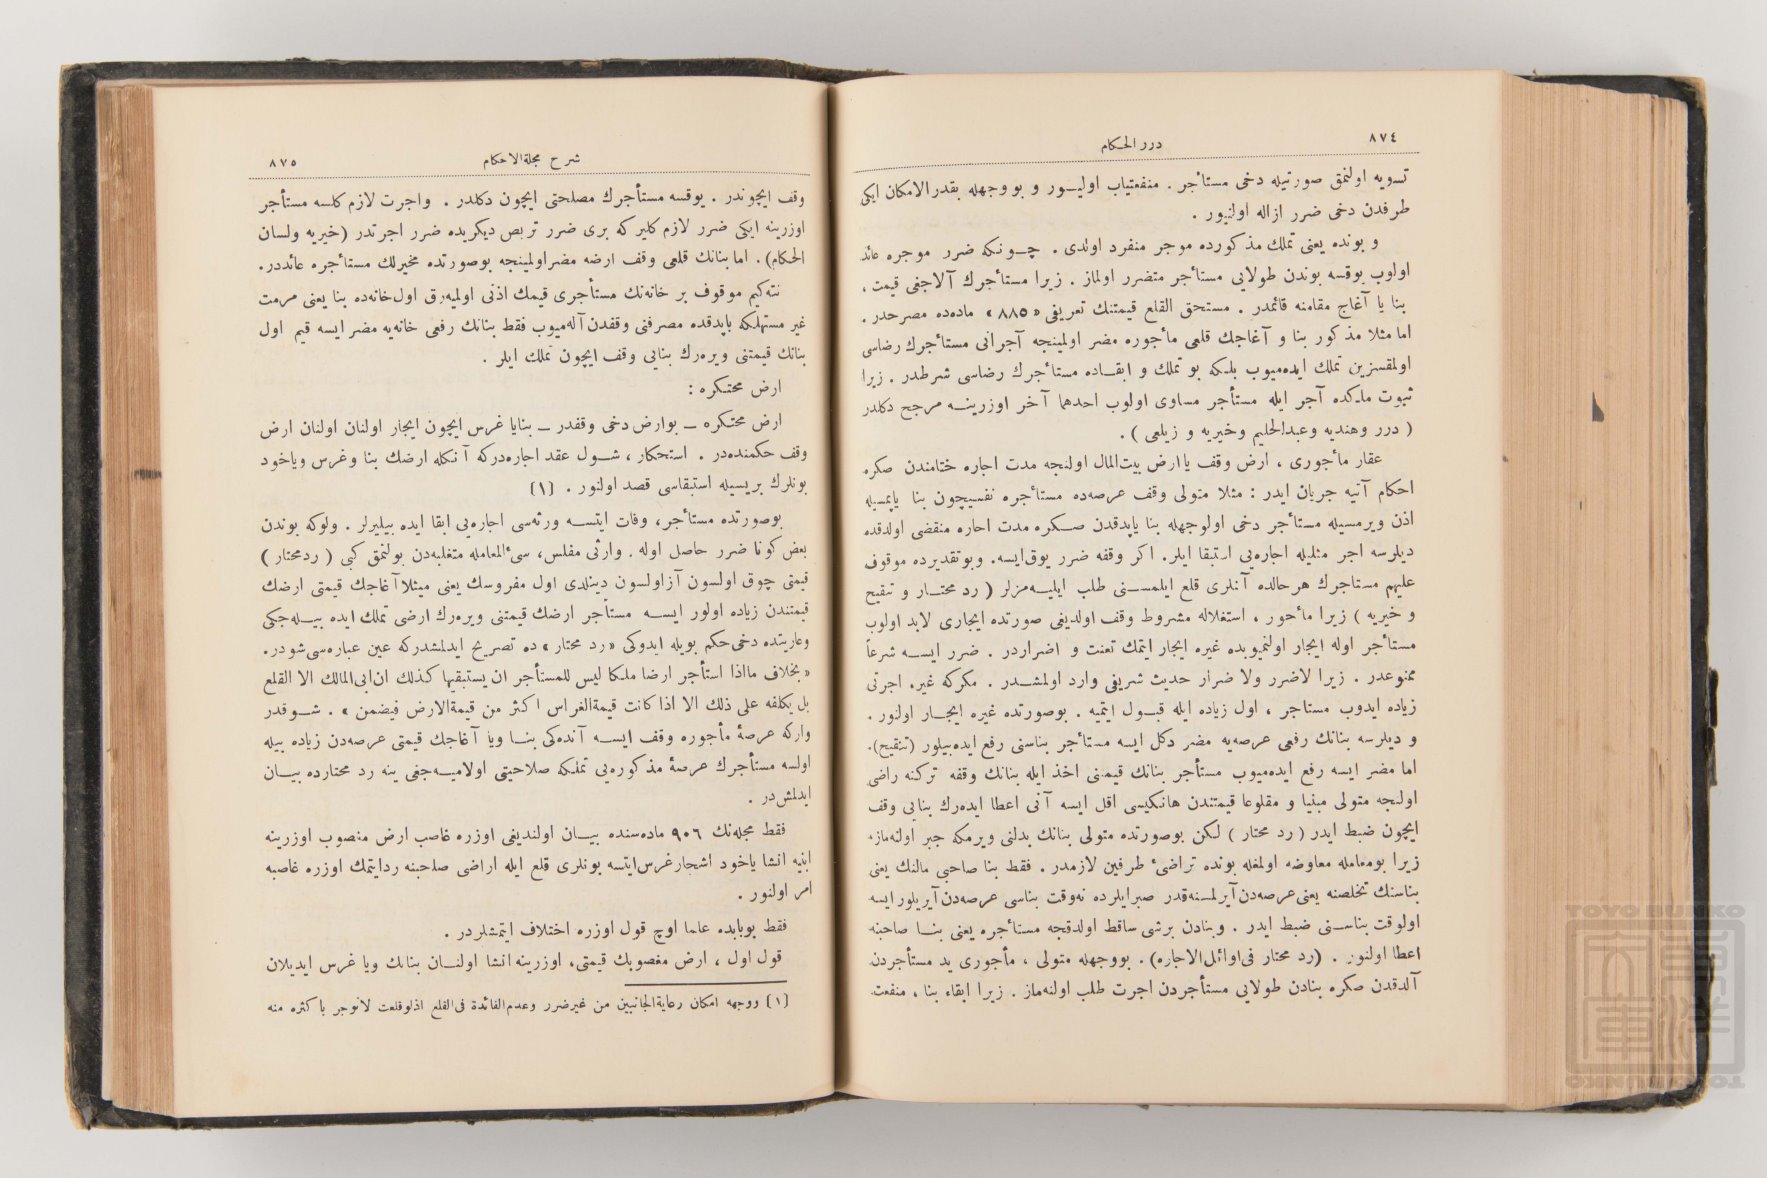 ٨٧٤
درر الحكام
تسويه اولنمق صورتيله دخى مستأجر . منفعتياب اوليور و بو وجهله بقدر الامكان ايكى
طرفدن دخى ضرر ازاله اولنيور .
و بونده يعنى تملك مذكورده موجر منفرد اولدى . چونكه ضرر موجره عائد
اولوب يوقسه بوندن طولايى مستأجر متضرر اولماز . زيرا مستأجرك آلاجغى قيمت ،
بنا يا آغاج مقامنه قائمدر . مستحق القلع قيمتنك تعريفى «٨٨٥» ماده‌ده مصرحدر .
اما مثلا مذكور بنا و آغاجك قلعى مأجوره مضر اولمينجه آجر آنى مستأجرك رضاسى
اولمقسزين تملك ايده‌ميوب بلكه بو تملك و ابقاده مستأجرك رضاسى شرطدر . زيرا
ثبوت ملكده آجر ايله مستأجر مساوى اولوب احدهما آخر اوزرينه مرجح دكلدر
( درر وهنديه وعبدالحليم وخيريه و زيلعى ) .
عقار مأجورى ، ارض وقف يا ارض بيت‌المال اولنجه مدت اجاره ختامندن صكره
احكام آتيه جريان ايدر : مثلا متولى وقف عرصه‌ده مستأجره نفسيچون بنا ياپمسيله
اذن ويرمسيله مستأجر دخى اولوجهله بنا ياپدقدن صكره مدت اجاره منقضى اولدقده
ديلرسه اجر مثليله اجاره‌يى استبقا ايلر. اكر وقفه ضرر يوق‌ايسه. وبوتقديرده موقوف
عليهم مستاجرك هر حالده آنلرى قلع ايلمسنى طلب ايليه‌مزلر ( رد محتار و تنقيح
و خيريه ) زيرا مأجور ، استغلاله مشروط وقف اولديغى صورتده ايجارى لابد اولوب
مستأجر اوله ايجار اولنميوبده غيره ايجار ايتمك تعنت و اضراردر . ضرر ايسه شرعاً
ممنوعدر . زيرا لاضرر ولا ضرار حديث شريفى وارد اولمشدر . مكركه غير. اجرتى
زياده ايدوب مستاجر ، اول زياده ايله قبول ايتميه . بوصورتده غيره ايجار اولنور .
و ديلرسه بنانك رفعى عرصه‌يه مضر دكل ايسه مستأجر بناسنى رفع ايده‌بيلور (تنقيح).
اما مضر ايسه رفع ايده‌ميوب مستأجر بنانك قيمتنى اخذ ايله بنانك وقفه تركنه راضى
اولنجه متولى مبنيا و مقلوعا قيمتندن هانكيسى اقل ايسه آنى اعطا ايده‌رك بنايى وقف
ايچون ضبط ايدر ( رد محتار ) لكن بوصورتده متولى بنانك بدلنى ويرمكه جبر اولنه‌ماز.
زيرا بومعامله معاوضه اولمغله بونده تراضىٔ طرفين لازمدر . فقط بنا صاحبى مالنك يعنى
بناسنك تخلصنه يعنى عرصه‌دن آيرلمسنه‌قدر صبر ايلرده نه‌وقت بناسى عرصه‌دن آيريلور ايسه
اولوقت بناسنى ضبط ايدر . وبنادن برشى ساقط اولدقجه مستأجره يعنى بنا صاحبنه
اعطا اولنور . (رد محتار فى اوائل الاجاره) . بووجهله متولى ، مأجورى يد مستأجردن
آلدقدن صكره بنادن طولايى مستأجردن اجرت طلب اولنه‌ماز . زيرا ابقاء بنا ، منفعت
شرح مجلة الاحكام
٨٧٥
وقف ايچوندر . يوقسه مستأجرك مصلحتى ايچون دكلدر . واجرت لازم كلسه مستأجر
اوزرينه ايكى ضرر لازم كلير كه برى ضرر تربص ديكريده ضرر اجرتدر (خيريه ولسان
الحكام) . اما بنانك قلعى وقف ارضه مضر اولمينجه بوصورتده مخيرلك مستأجره عائددر.
نته‌كيم موقوف بر خانه‌نك مستأجرى قيمك اذنى اولميه‌رق اول‌خانه‌ده بنا يعنى مرمت
غير مستهلكه ياپدقده مصرفنى وقفدن آله‌ميوب فقط بنانك رفعى خانه‌يه مضر ايسه قيم اول
بنانك قيمتنى ويره‌رك بنايى وقف ايچون تملك ايلر .
ارض محتكره :
ارض محتكره ــ بوارض دخى وقفدر ــ بنايا غرس ايچون ايجار اولنان اولنان ارض
وقف حكمنده‌در . استحكار ، شول عقد اجاره‌دركه آنكله ارضك بنا وغرس وياخود
بونلرك بريسيله استبقاسى قصد اولنور . (١)
بوصورتده مستأجر، وفات ايتسه ورثه‌سى اجاره‌يى ابقا ايده بيليرلر . ولوكه بوندن
بعض كونا ضرر حاصل اوله . وارثى مفلس، سىٔ‌المعامله متغلبه‌دن بولنمق كبى ( ردمحتار )
قيمتى چوق اولسون آزاولسون دينلدى اول مغروسك يعنى مثلا آغاجك قيمتى ارضك
قيمتندن زياده اولور ايسه مستأجر ارضك قيمتنى ويره‌رك ارضى تملك ايده بيله‌جكى
وعاريتده دخى حكم بويله ايدوكى «رد محتار» ده تصريح ايدلمشدركه عين عباره‌سى شودر.
« بخلاف مااذا استأجر ارضا ملكا ليس للمستأجر ان يستبقيها كذلك ان‌ابى المالك الا القلع
بل يكلفه على ذلك الا اذا كانت قيمة‌الغراس اكثر من قيمة‌الارض فيضمن » . شوقدر
واركه عرصهٔ مأجوره وقف ايسه آنده‌كى بنا ويا آغاجك قيمتى عرصه‌دن زياده بيله
اولسه مستأجرك عرصهٔ مذكوره‌يى تملكه صلاحيتى اولاميه‌جغى ينه رد محتارده بيان
ايدلمش‌در .
فقط مجله‌نك ٩٠٦ ماده‌سنده بيان اولنديغى اوزره غاصب ارض منصوب اوزرينه
ابنيه انشا ياخود اشجار غرس‌ايتسه بونلرى قلع ايله اراضى صاحبنه ردايتمك اوزره غاصبه
امر اولنور .
فقط بوبابده علما اوچ قول اوزره اختلاف ايتمشلردر .
قول اول ، ارض مغصوبك قيمتى، اوزرينه انشا اولنان بنانك ويا غرس ايديلان
(١) ووجهه امكان رعاية‌الجانبين من غيرضرر وعدم‌الفائدة فى‌القلع اذلوقلعت لاتوجر باكثره منه